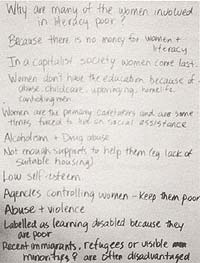 Why are many of the women involved
in literacy poor?
Because there is no money for women +
literacy
In a capitalist society women come last.
Women don't have the education because of
abuse, childcare, upbringing, homelife,
controlling men.
Women are the primary caregivers and are some
times forced to live on social assistance
Alcoholism + Drug abuse
Not enough supports to help them (eg. lack of
suitable housing)
Low self-esteem
Agencies controlling women - keep them poor
Abuse + violence
Labelled as learning disabled because they
are poor
Recent immigrants, refugees or visible
minorities are often disadvantaged